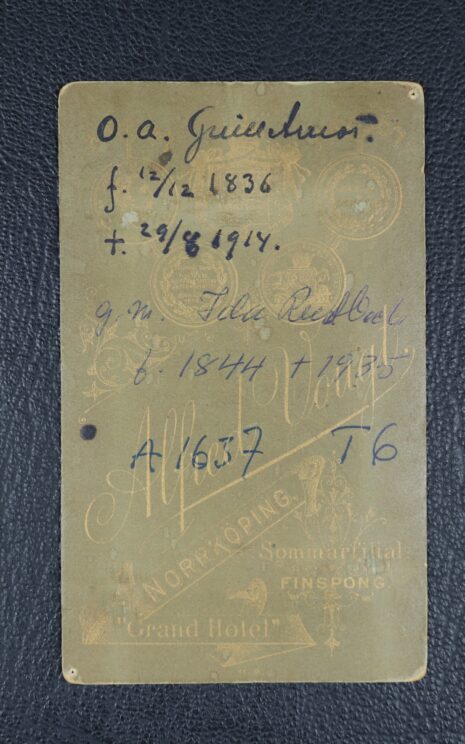 O. A.
f. 12/12 1836
+. 29/8 1914.
g. m.
f. 1844 + 1935
A 1637 T6
Alfred
NORRKÖPING.
Sommarfilial
FINSPONG
"Grand Hotel"